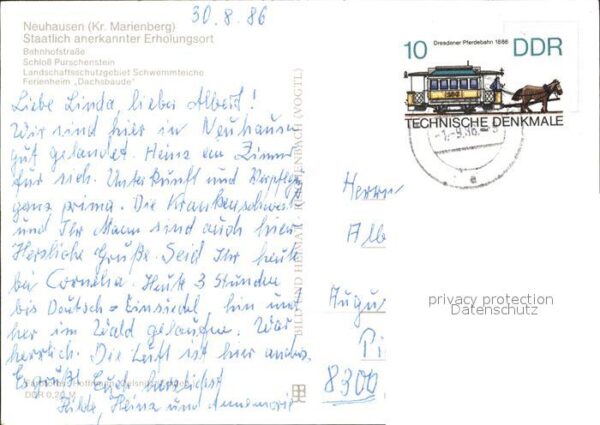 30.8.86
Neuhausen (Kr. Marienberg)
Staatlich anerkannter Erholungsort
Bahnhofstraße
Schloß Purschenstein
Landschaftsschutzgebiet Schwemmteiche
Ferienheim „Dachsbaude"
Liebe Linda, lieber Albert!
Wir sind hier in Neuhausen
gut gelandet. Heinz ein Zimmer
für sich. Unterkunft und Verpfleg
ganz prima. Die Krankenschwest
und Ihr Mann sind auch hier
Herzliche Grüße. Seid Ihr heute
bei Cornelia. Heute 3 Stunden
bis Deutsch=Einsiedel hin und
her im Wald gelaufen. War
herrlich. Die Luft ist hier anders.
Es grüßt Euch herzlichst
Hilde, Heinz und Annemarie
DDR 0,20 M
BILD UND HEIMAT REICHENBACH (VOGTL)
10 Dresdener Pferdebahn 1886 DDR
TECHNISCHE DENKMALE
Herrn
Alb
Augu
Pi
8300
privacy protection
Datenschutz